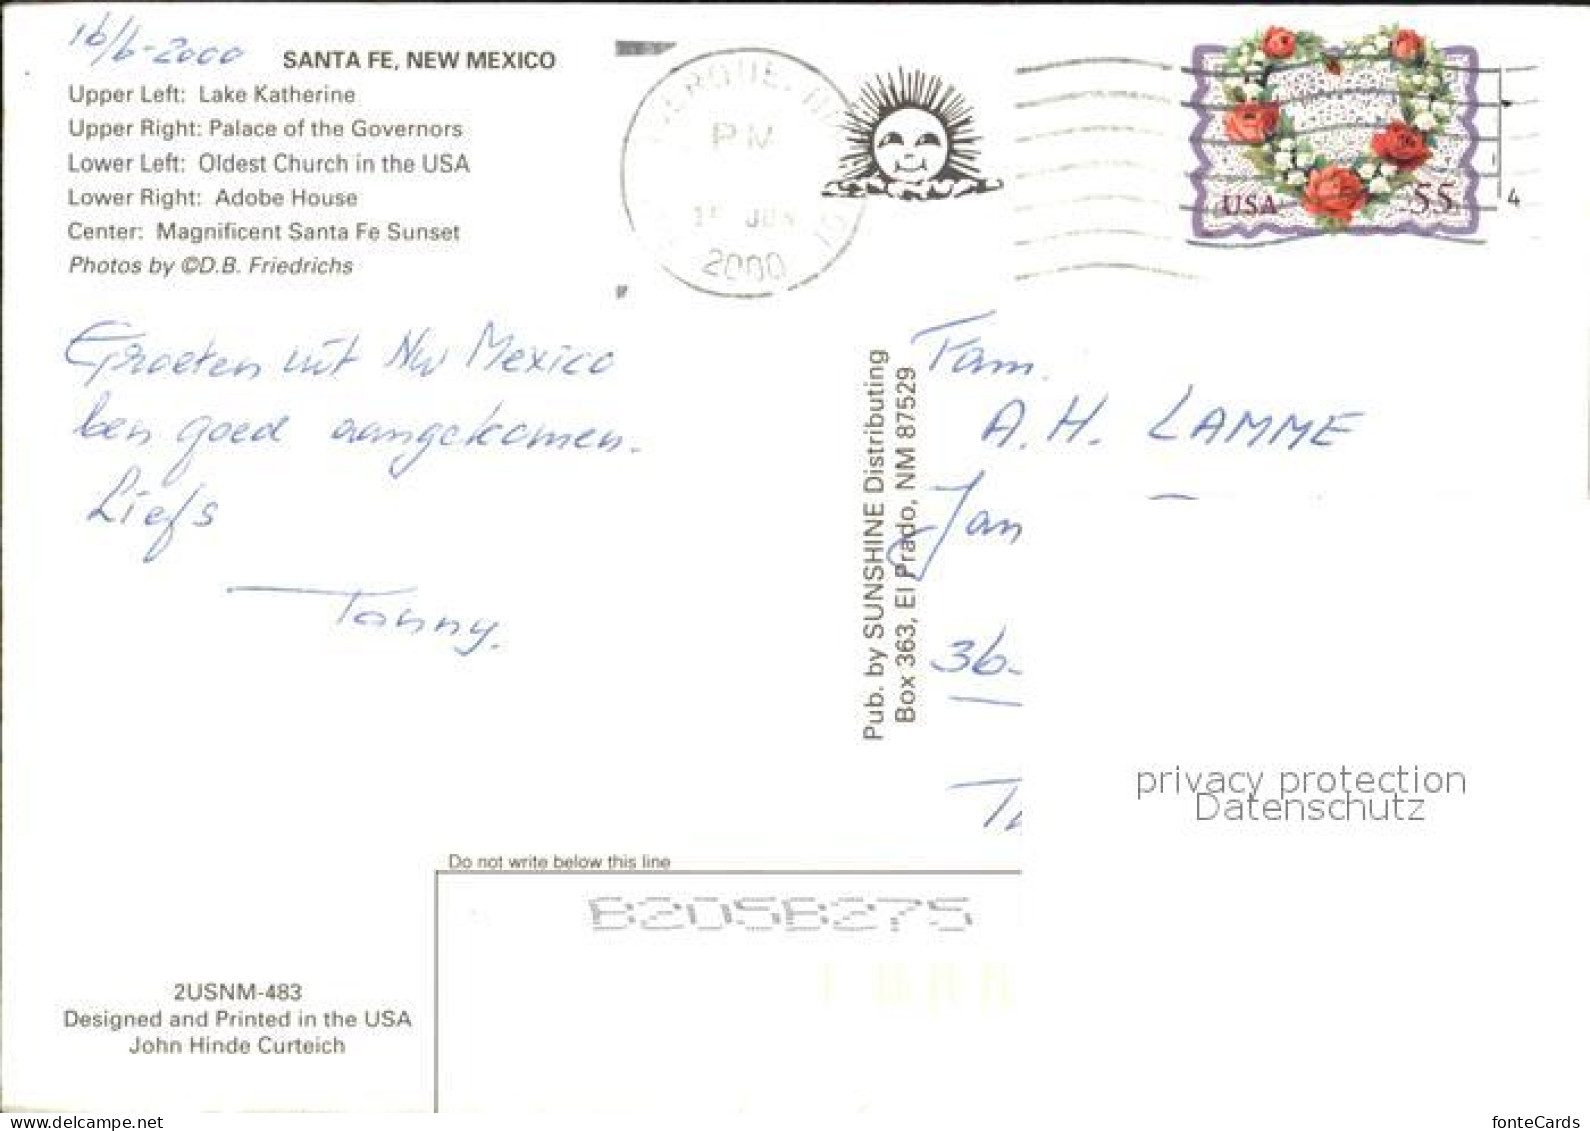 16/6-2000
SANTA FE, NEW MEXICO
Upper Left: Lake Katherine
Upper Right: Palace of the Governors
Lower Left: Oldest Church in the USA
Lower Right: Adobe House
Center: Magnificent Santa Fe Sunset
Photos by ©D.B. Friedrichs
PM
2000
USA 55
4
Groeten uit Nw Mexico
ben goed aangekomen.
Liefs
Tonny.
Pub. by SUNSHINE Distributing
Box 363, El Prado, NM 87529
Fam.
A.H. LAMME
Jan
36-
privacy protection
Datenschutz
Do not write below this line
B205B275
2USNM-483
Designed and Printed in the USA
John Hinde Curteich
www.delcampe.net
fonteCards